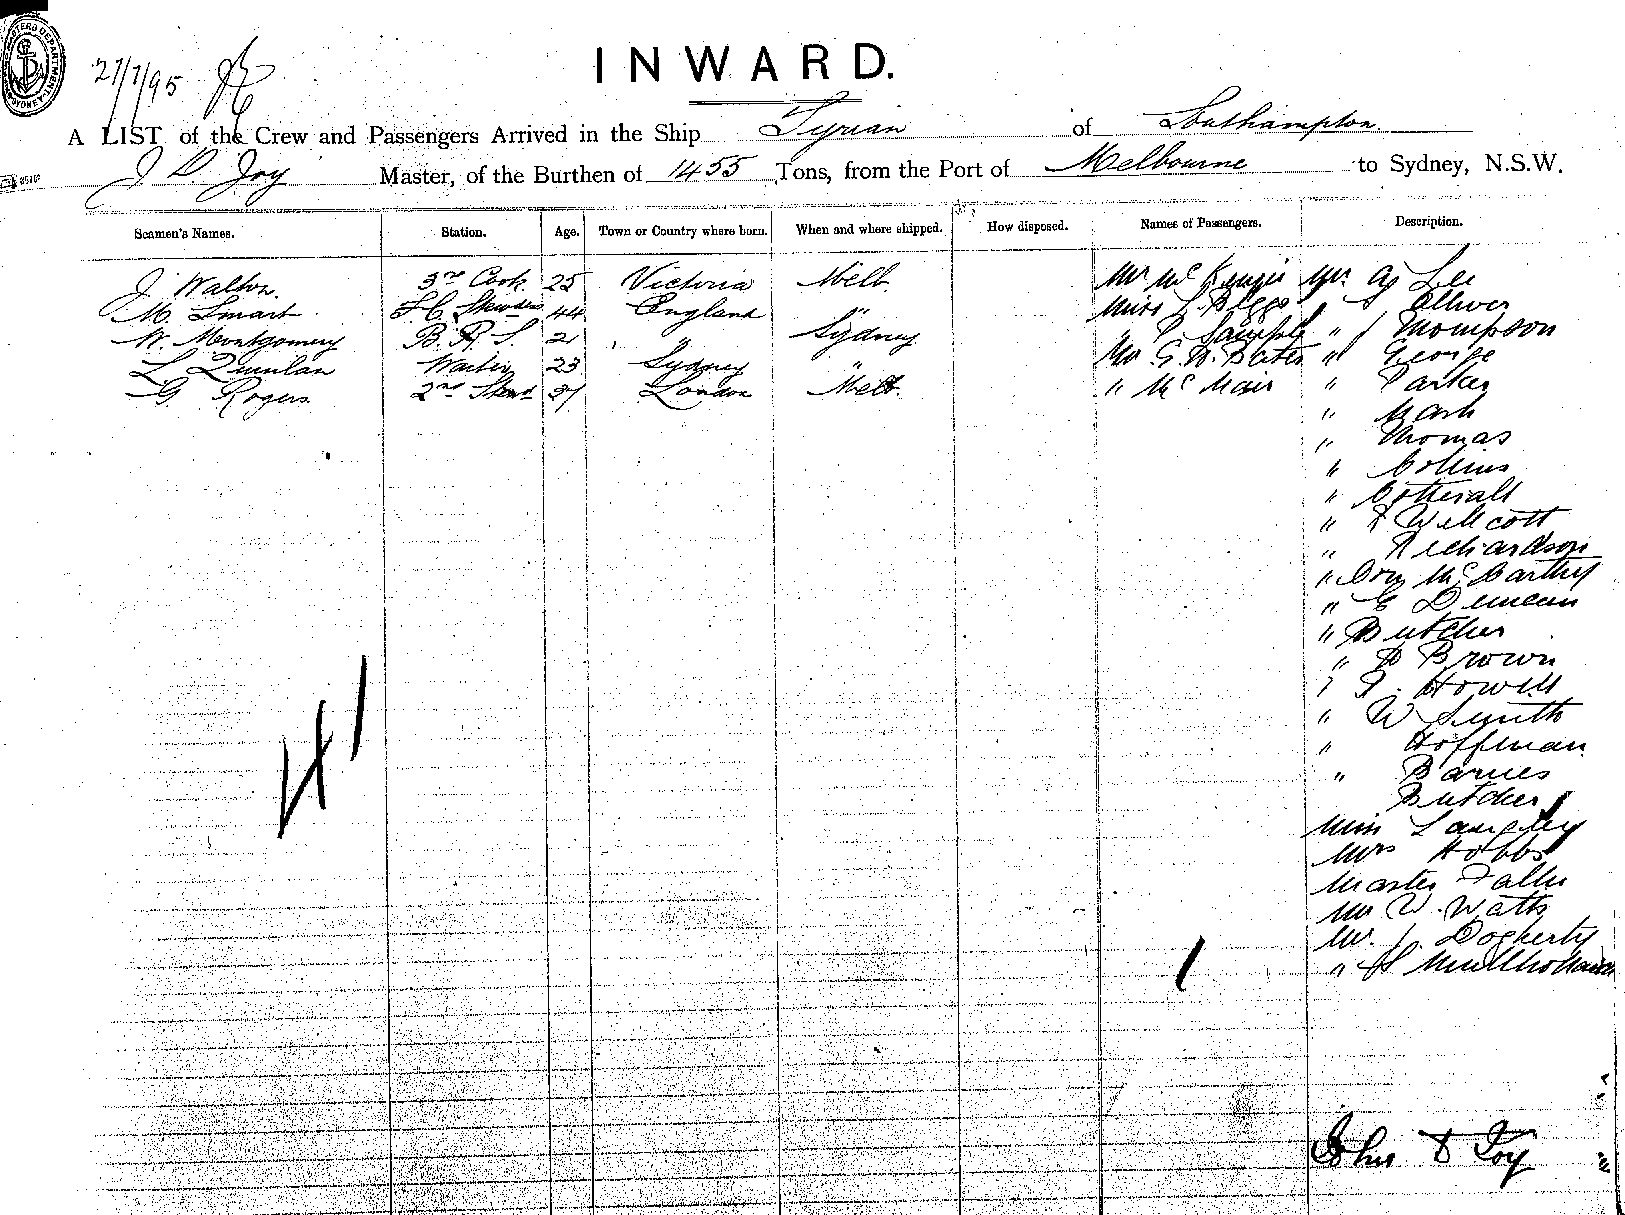 27/7/95
INWARD.
A LIST of the Crew and Passengers Arrived in the Ship Tyrian of Southampton
J D. Joy Master, of the Burthen of 1455 Tons, from the Port of Melbourne to Sydney, N.S.W.
Seamen's Names. Station. Age. Town or Country where born. When and where shipped. How disposed. Names of Passengers. Description.
J Walton. 3rd Cook 25 Victoria Melb. Mr McKenzie Mr Ag Lee
M Smart F.C. Stewdess 44 England " Miss L Biggs " Oliver
W. Montgomery B. R. S. 21 " Sydney " Sample " J Thompson
L Quinlan Waiter 23 Sydney " Mr G. W. Bates " George
G Rogers 2nd Stewd London Melb. " McNair " Parker
" Mark
" Thomas
" Collins
" Cotterall
" Willcott
" Richardson
" Con McCarthy
" E Duncan
" Butcher
" Brown
" Howell
" W Smith
" Hoffman
" Barnes
Butcher
Miss Langley
Mrs Hobbs
Master
Mr W. Watts
Mr. J. Dogherty
" Mullholland
John D Joy